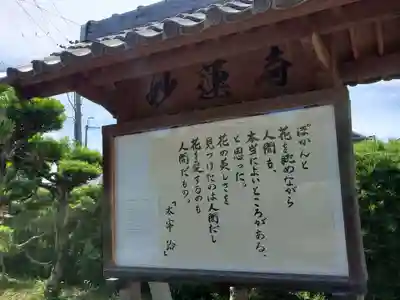 妙蓮寺
ぼかんと
花を眺めながら
人間も、
本当によいところがある、
と思った。
花の美しさを
見つけたのは人間だし
花を愛するのも
人間だもの。
「太宰 治」